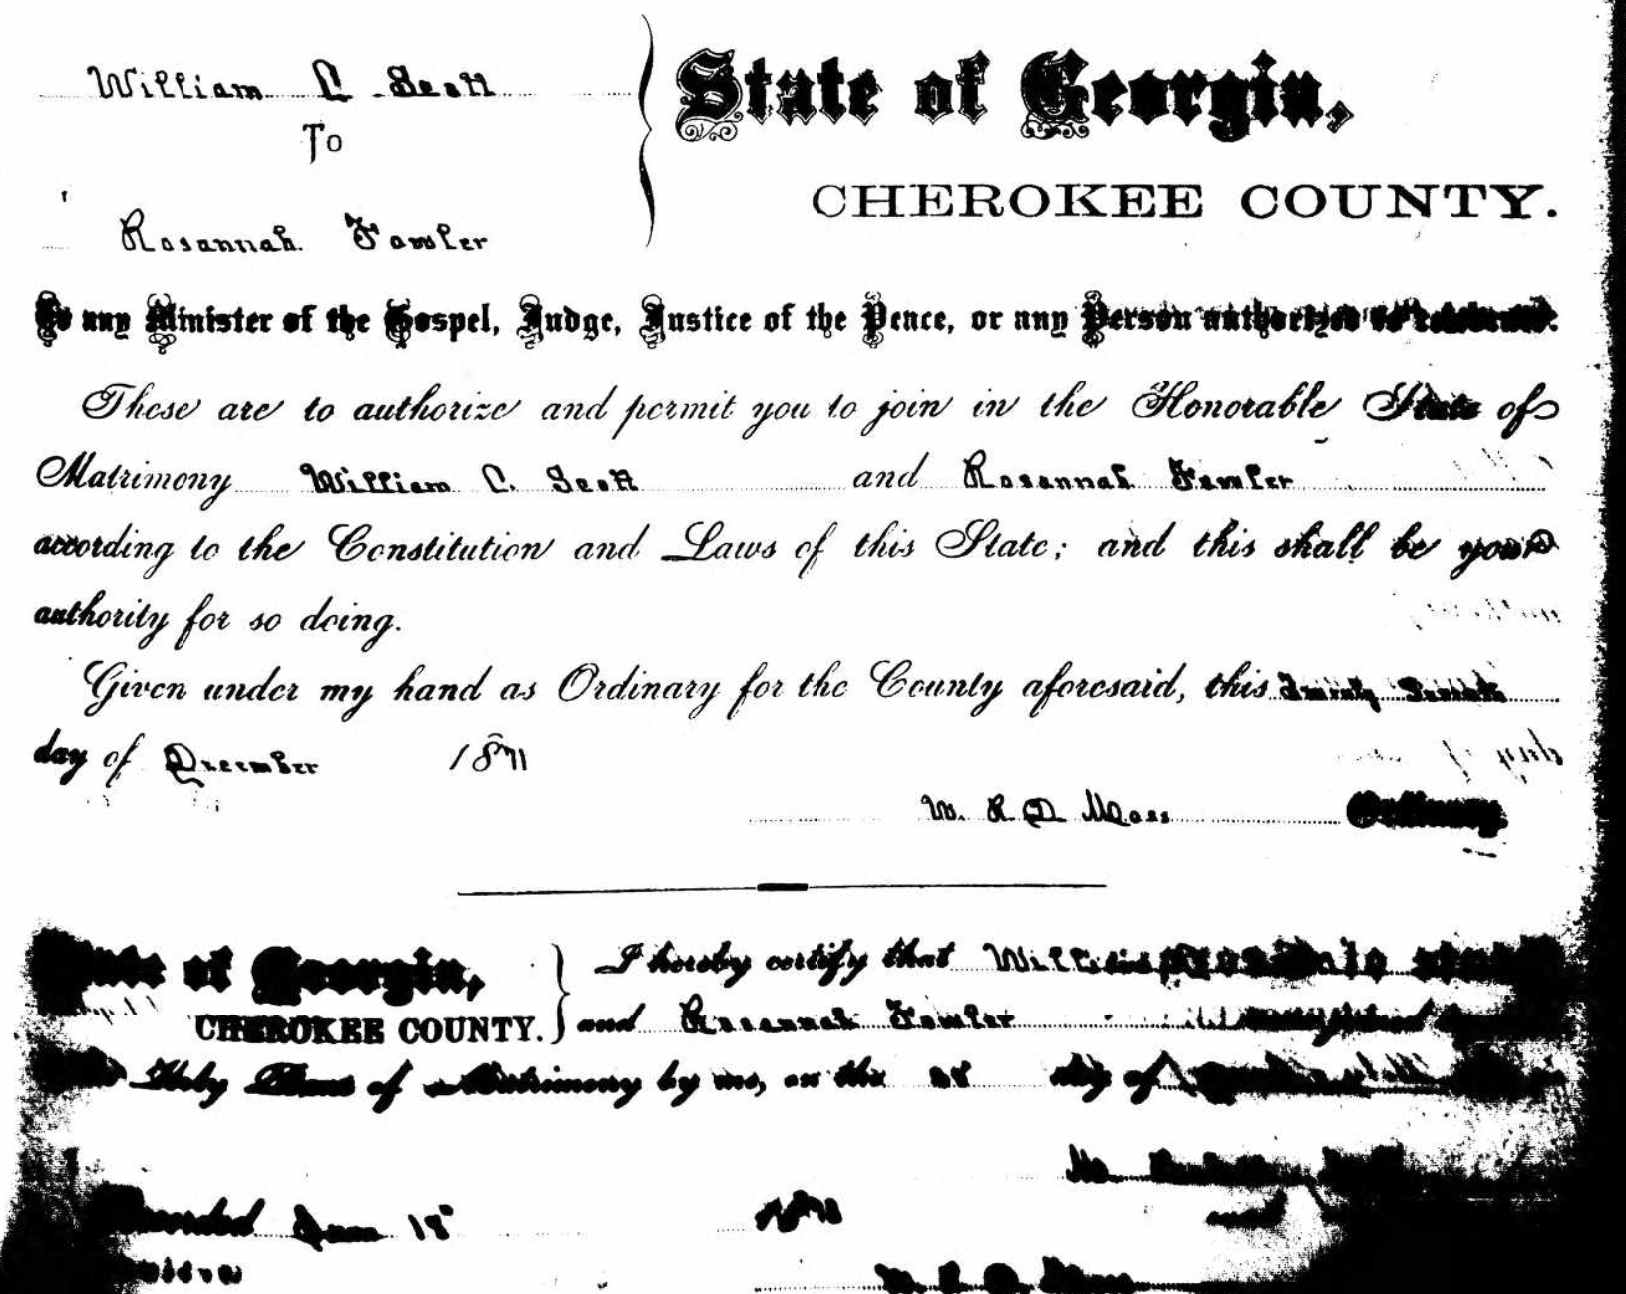 William C Scott
To
Rosannah Fowler
State of Georgia,
CHEROKEE COUNTY.
To any Minister of the Gospel, Judge, Justice of the Peace, or any Person authorized to
These are to authorize and permit you to join in the Honorable State of
Matrimony William C. Scott and Rosannah Fowler
according to the Constitution and Laws of this State; and this shall be your
authority for so doing.
Given under my hand as Ordinary for the County aforesaid, this Twenty
day of December 1871
W. R. D. Moss Ordinary
State of Georgia,
CHEROKEE COUNTY.
I hereby certify that William
and Rosannah Fowler
Holy Bans of Matrimony by me, on the 28 day of
Recorded Jan 18